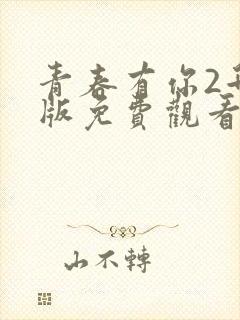 青春有你2
版免費觀看
山不轉